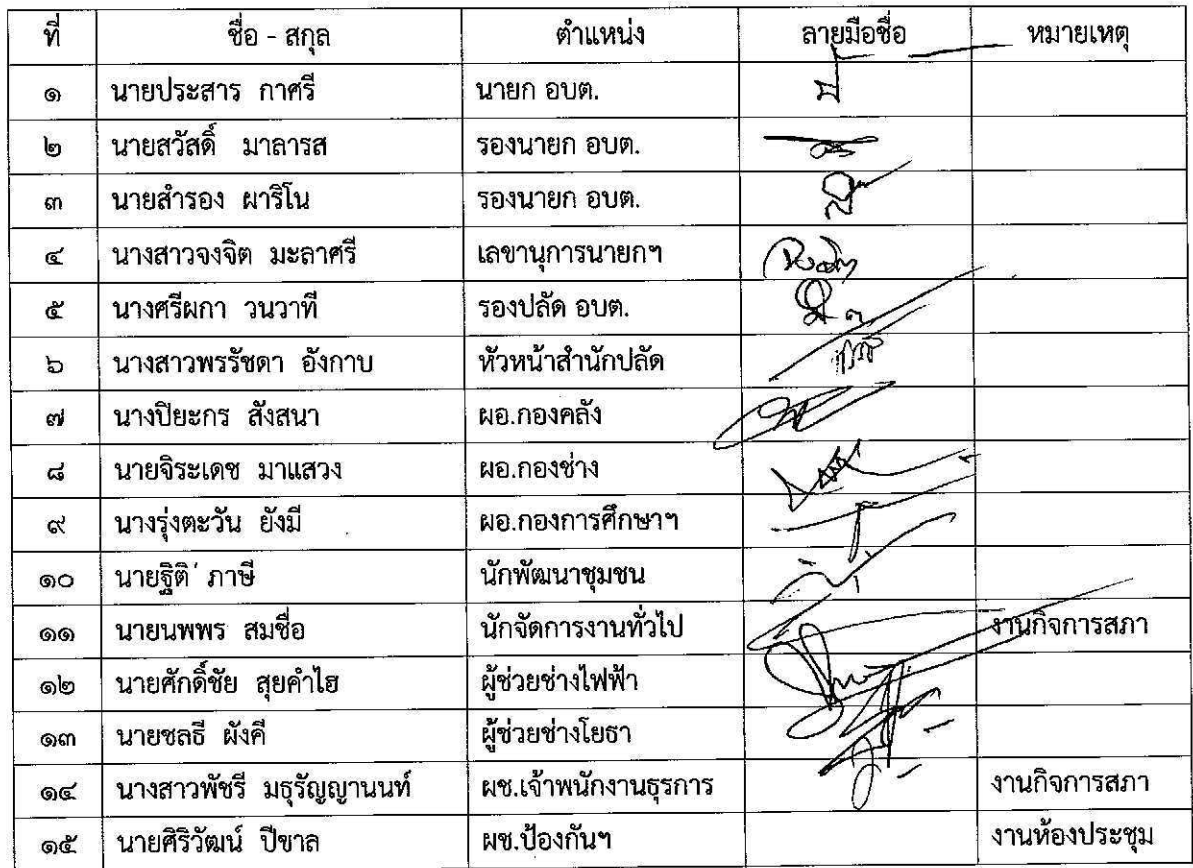 ที่ ชื่อ - สกุล ตำแหน่ง ลายมือชื่อ หมายเหตุ
๑ นายประสาร กาศรี นายก อบต.
๒ นายสวัสดิ์ มาลารส รองนายก อบต.
๓ นายสำรอง ผาริโน รองนายก อบต.
๔ นางสาวจงจิต มะลาศรี เลขานุการนายกฯ
๕ นางศรีผกา วนวาที รองปลัด อบต.
๖ นางสาวพรรัชดา อังกาบ หัวหน้าสำนักปลัด
๗ นางปิยะกร สังสนา ผอ.กองคลัง
๘ นายจิระเดช มาแสวง ผอ.กองช่าง
๙ นางรุ่งตะวัน ยังมี ผอ.กองการศึกษาฯ
๑๐ นายฐิติ ภาษี นักพัฒนาชุมชน
๑๑ นายนพพร สมชื่อ นักจัดการงานทั่วไป งานกิจการสภา
๑๒ นายศักดิ์ชัย สุยคำไฮ ผู้ช่วยช่างไฟฟ้า
๑๓ นายชลธี ผังคี ผู้ช่วยช่างโยธา
๑๔ นางสาวพัชรี มธุรัญญานนท์ ผช.เจ้าพนักงานธุรการ งานกิจการสภา
๑๕ นายศิริวัฒน์ ปีขาล ผช.ป้องกันฯ งานห้องประชุม